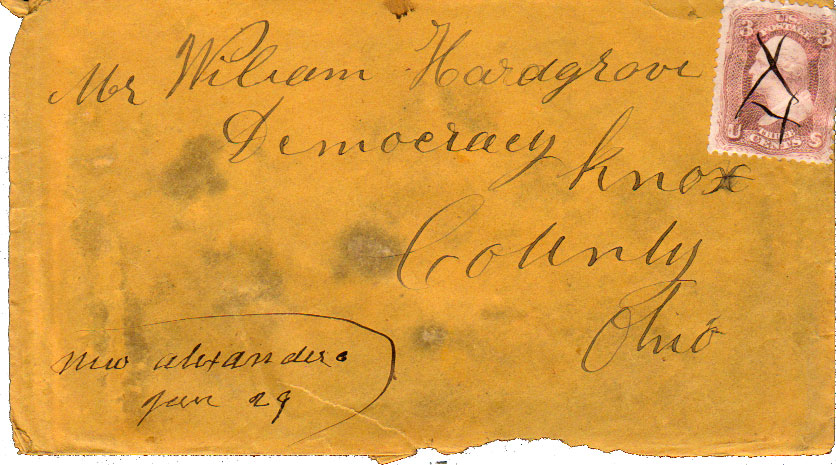 Mr Wiliam Hardgrove
Democracy Knox
County
Ohio
new alexander
Jan 29
3 U.S. POSTAGE 3
U THREE CENTS S
X